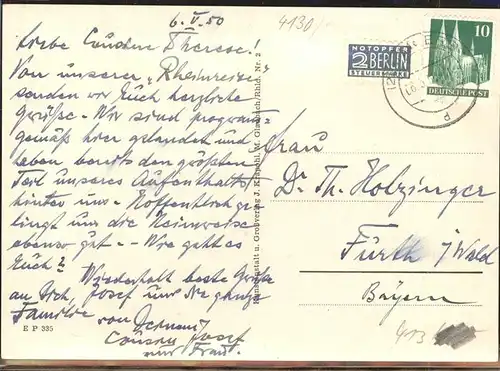 6. V. 50
4130/
Liebe Cousine Therese!
Von unserer „Rheinreise"
senden wir Euch herzliche
Grüße. Wir sind programm-
gemäß hier gelandet und
haben bereits den größten
Teil unseres Aufenthalts
hinter uns. Hoffentlich ge-
lingt uns die Heimreise
ebenso gut. - Wie geht es
Euch?
Wiederholt beste Grüße
an Dich, Josef und die ganze
Familie
von Deinem
Cousin Josef
und Frau.
E P 335
Kunstanstalt u. Großverlag J. M. Gladbach/Rhld. Nr. 2
NOTOPFER
2 BERLIN
STEUERMARKE
10
DEUTSCHE POST
d
Frau
Dr. Th. Holzinger
Furth i/Wald
Bayern
413